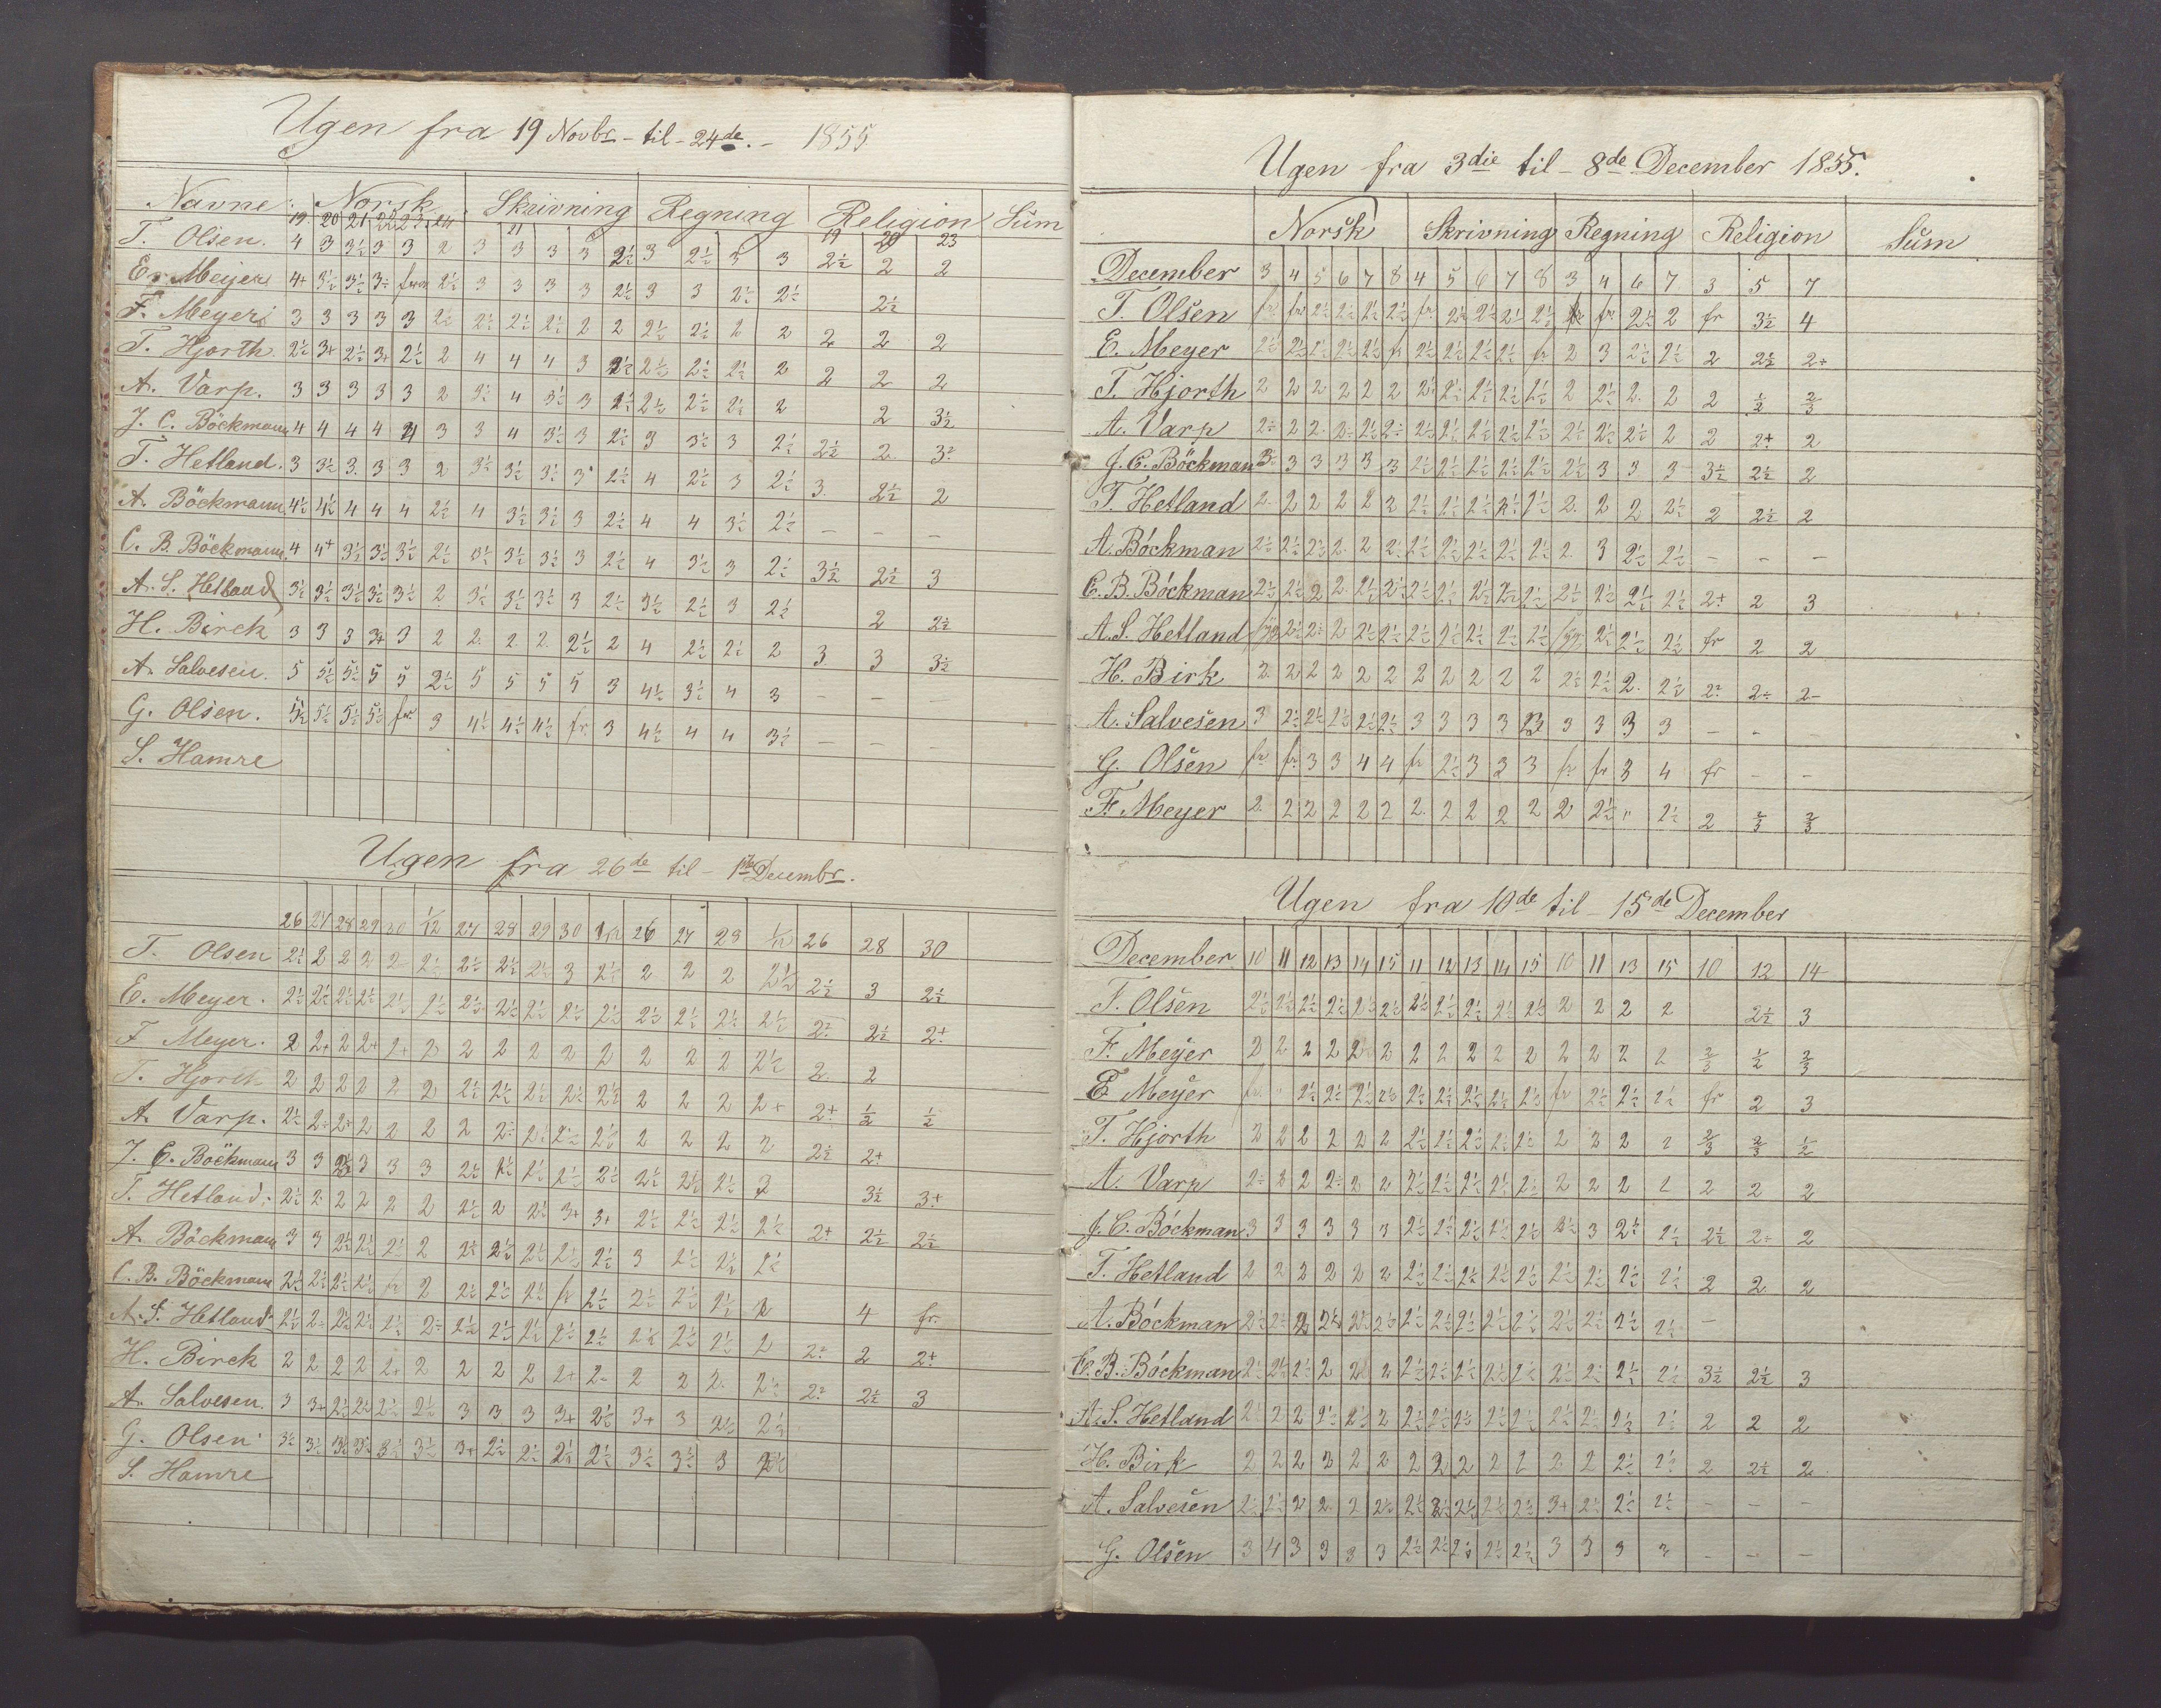 Ugen fra 19 Novbr - til - 24de. - 1855
Navne: Norsk Skrivning Regning Religion Sum
19 20 21 22 23 24 21 19 20 23
T. Olsen. 4 3 3½ 3 3 2 3 3 3 3 2½ 3 2½ 3 3 2½ 2 2
E. Meijer 3 3 3 3 2½ 3 3 2½ 2½ 2½
F. Meyer 3 3 3 3 3 2½ 2½ 2½ 2½ 2 2 2½ 2½ 2 2 2 2 2
T. Hjorth. 2½ 3+ 2½ 3+ 2½ 2 4 4 4 3 2½ 2½ 2½ 2½ 2 2 2 2
A. Varp. 3 3 3 3 3 2 3½ 4 3½ 3 2½ 2½ 2½ 2½ 2 2 3½
J. C. Böckmann 4 4 4 4 4 3 3 4 3½ 3 2½ 3 3½ 3 2½ 2½ 2
T. Hetland. 3 3½ 3 3 3 2 3½ 3½ 3½ 3 2½ 4 2½ 3 2½ 3. 2½ 2
A. Böckmann. 4½ 4½ 4 4 4 2½ 4 3½ 3½ 3 2½ 4 4 3½ 2½ - - -
C. B. Böckmann. 4 4+ 3½ 3½ 3½ 2½ 3½ 3½ 3½ 3 2½ 4 3½ 3 2½ 3½ 2½ 3
A. S. Hetland 3½ 3½ 3½ 3½ 3½ 2 3½ 3½ 3½ 3 2½ 3½ 2½ 3 2½ 2 2½
H. Birck 3 3 3 3+ 3 2 2. 2. 2. 2½ 2 4 2½ 2½ 2 3 3 3½
A. Salvesen. 5 5½ 5½ 5 5 2½ 5 5 5 5 3 4½ 3½ 4 3 - - -
G. Olsen. 5½ 5½ 5½ 5½ fr. 3 4½ 4½ 4½ fr. 3 4½ 4 4 3½ - - -
S. Hamre
Ugen fra 26de til - 1ste Decembr.
26 27 28 29 30 1/12 27 28 29 30 1/12 26 27 28 1/12 26 28 30
T. Olsen 2½ 2 2 2 2 2½ 2½ 2½ 2½ 3 2½ 2 2 2 2½ 2½ 3 2½
E. Meyer. 2½ 2½ 2½ 2½ 2½ 2½ 2½ 2½ 2½ 2½ 2½ 2½ 2½ 2½ 2½ 2½ 2+
F Meyer. 2 2+ 2 2+ 2+ 2 2 2 2 2 2 2 2 2 2½ 2 2
T. Hjorth 2 2 2 2 2 2 2½ 2½ 2½ 2½ 2½ 2 2 2 2+ 2+ ½ ½
A. Varp. 2 2 2 2 2 2 2 2½ 2+
J. C. Böckmann 3 3 3 3 3 2½ 2½ 2½ 2½ 2½ 2½ 3½ 3+
T. Hetland. 2½ 2 2 2 2 2 2½ 2 2½ 3+ 3+ 2½ 2½ 2½ 2½ 2+ 2½ 2½
A. Böckmann 3 3 2½ 2½ 2½ 2 2½ 2½ 2½ 2½ 2½ 3 2½ 2½ 2½
C. B. Böckmann 2½ 2½ 2½ 2½ fr 2 2½ 2½ 2½ fr 2½ 2½ 2½ 2½ 2 4 fr.
A. S. Hetland. 2 2+ 2 2+
H. Birck 2 2 2 2 2+ 2 2 2 2 2+ 2 2 2 2. 2½ 2½ 3
A. Salvesen. 3 3+ 2½ 2½ 2½ 2½ 3 3 3 3+ 2½ 3+ 3 2½ 2½
G. Olsen. 3½ 3½ 3½ 3½ 3½ 3½ 3+ 2½ 2½ 2½ 2½ 3½ 3½ 3
S. Hamre
Ugen fra 3die til - 8de December 1855.
Norsk Skrivning Regning Religion Sum
December 3 4 5 6 7 8 4 5 6 7 8 3 4 6 7 3 5 7
T. Olsen fr fr 2½ 2½ 2½ 2½ fr. 2½ 2½ 2½ 2½ fr fr. 2½ 2 fr 3½ 4
E. Meyer 2½ 2½ 2½ 2½ 2½ fr 2½ 2½ 2½ 2½ fr. 2 3 2½ 2½ 2 2½
T. Hjorth 2 2 2 2 2 2 2½ 2½ 2½ 2½ 2½ 2 2½ 2. 2 2 ½ ⅔
A. Varp 2 2+ 2
J. C. Böckman 3 3 3 3 3 2½ 2½ 2½ 2½ 2½ 2½ 3 3 3 3½ 2½ 2
T. Hetland 2. 2 2 2 2 2 2½ 2½ 2½ 2½ 2½ 2. 2 2 2½ 2 2½ 2
A. Böckman 2½ 2½ 2½ 2. 2 2½ 2½ 2½ 2½ 2½ 2. 3 2½ 2½ - - -
C. B. Böckman 2½ 2½ 2 2. 2½ 2½ 2½ 2½ 2½ 2½ 2½ 2½ 2½ 2½ 2½ 2+ 2 3
A. S. Hetland 2 fr 2 2
H. Birk 2. 2 2 2 2 2 2 2 2 2 2 2½ 2½ 2. 2½
A. Salvesen 3 2½ 2½ 2½ 2½ 2½ 3 3 3 3 3 3 3 3 3 - - -
G. Olsen fr fr 3 3 4 4 fr 2½ 3 3 3 fr fr 3 4 fr - -
F. Meyer 2. 2 2 2 2 2 2. 2 2 2 2 2 2½ " 2½ 2 ⅔ ⅔
Ugen fra 10de til - 15de December
December 10 11 12 13 14 15 11 12 13 14 15 10 11 13 15 10 12 14
T. Olsen 2½ 2½ 2½ 2½ 2½ 2½ 2½ 2½ 2½ 2½ 2½ 2 2 2 2 2½ 3
F. Meyer 2 2 2 2 2 2 2 2 2 2 2 2 2 2 2 ⅔ ½ ⅔
E Meyer fr. " 2½ 2½ 2½ 2½ 2½ 2½ 2½ 2½ 2½ fr 2½ 2½ 2½ fr 2 3
T. Hjorth 2 2 2 2 2 2 2½ 2½ 2½ 2½ 2½ 2 2 2 2 ⅔ ⅔ ½
A. Varp 2 2 2 2 2 2 2
J. C. Böckman 3 3 3 3 3 3 2½ 2½ 2½ 2½ 2½ 2½ 3 2½ 2½ 2½ 2
T. Hetland 2 2 2 2 2 2 2½ 2½ 2½ 2½ 2½ 2½ 2½ 2½ 2½ 2 2 2
A. Böckman 2½ 2½ 2½ 2½ 2½ 2½ 2½ 2½ 2½ 2½ 2½ -
C. B. Böckman 2½ 2½ 2½ 2 2 2 2½ 2½ 2½ 2½ 2½ 2½ 2½ 2½ 2½ 3½ 2½ 3
A. S. Hetland 2½ 2 2 2½ 2½ 2 2½ 2½ 2½ 2½ 2½ 2½ 2½ 2½ 2½ 2 2 2
H. Birk 2 2 2 2 2 2 2 2 2 2 2 2 2 2½ 2½ 2 2½ 2
A. Salvesen 2½ 2½ 2 2 2 2½ 2½ 2½ 2½ 2½ 2½ 3+ 2½ 2½ 2½ - - -
G. Olsen 3 4 3 3 3 3 2½ 2½ 2½ 2½ 2½ 3 3 3 3 - - -